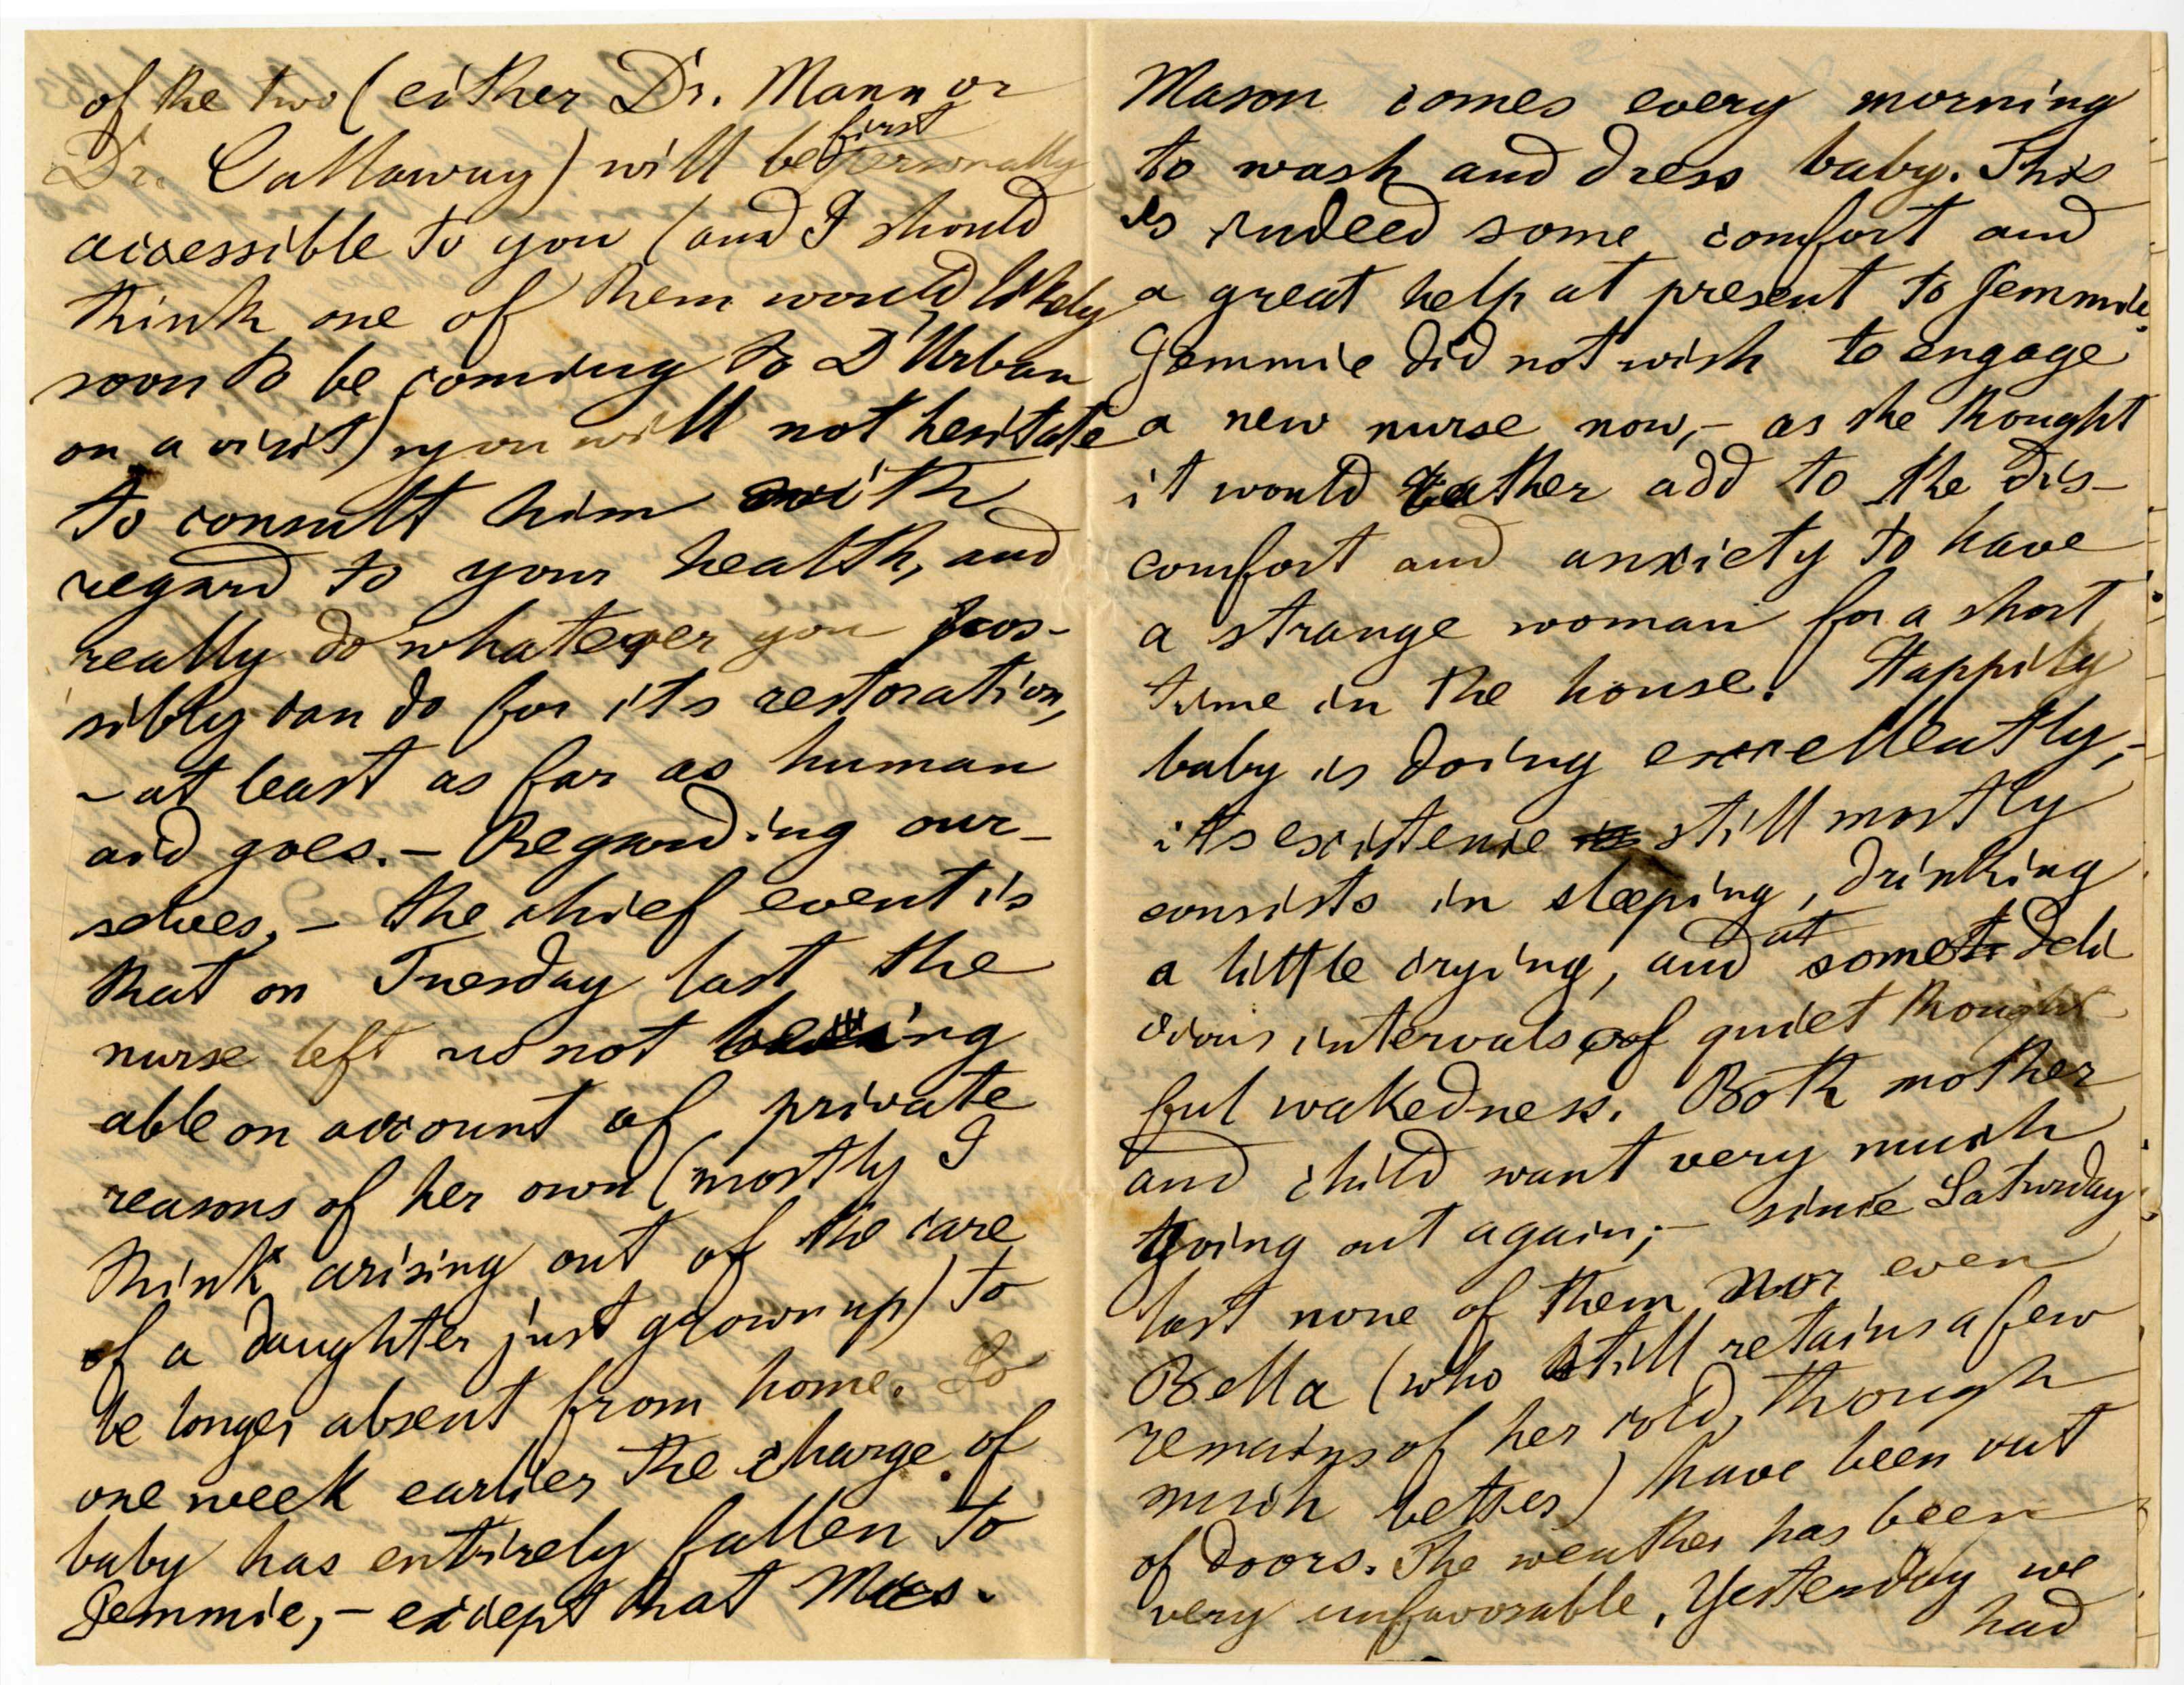 of the two (either Dr. Mann or
Dr. Callaway) will be first personally
accessible to you (and I should
think one of them would likely
soon to be coming to D'Urban
on a visit) you will not hesitate
to consult him with
regard to your health, and
really do whatever you pos-
sibly can do for its restoration,
- at least as far as human
aid goes. - Regarding our-
selves, - the chief event is
that on Tuesday last the
nurse left us not being
able on account of private
reasons of her own (mostly I
think arising out of the care
of a daughter just grown up) to
be longer absent from home. So
one week earlier the charge of
baby has entirely fallen to
Jemmie, - except that Mrs.
Mason comes every morning
to wash and dress baby. This
is indeed some comfort and
a great help at present to Jemmie.
Jemmie did not wish to engage
a new nurse now, - as she thought
it would rather add to the dis-
comfort and anxiety to have
a strange woman for a short
time in the house. Happily
baby is doing excellently, -
its existence still mostly
consists in sleeping, drinking
a little crying, and at some deli
cious intervals of quiet thought
ful wakedness. Both mother
and child want very much
going out again; - since Saturday
last none of them nor even
Bella (who still retains a few
remains of her cold, though
much better) have been out
of doors. The weather has been
very unfavorable. Yesterday we
had